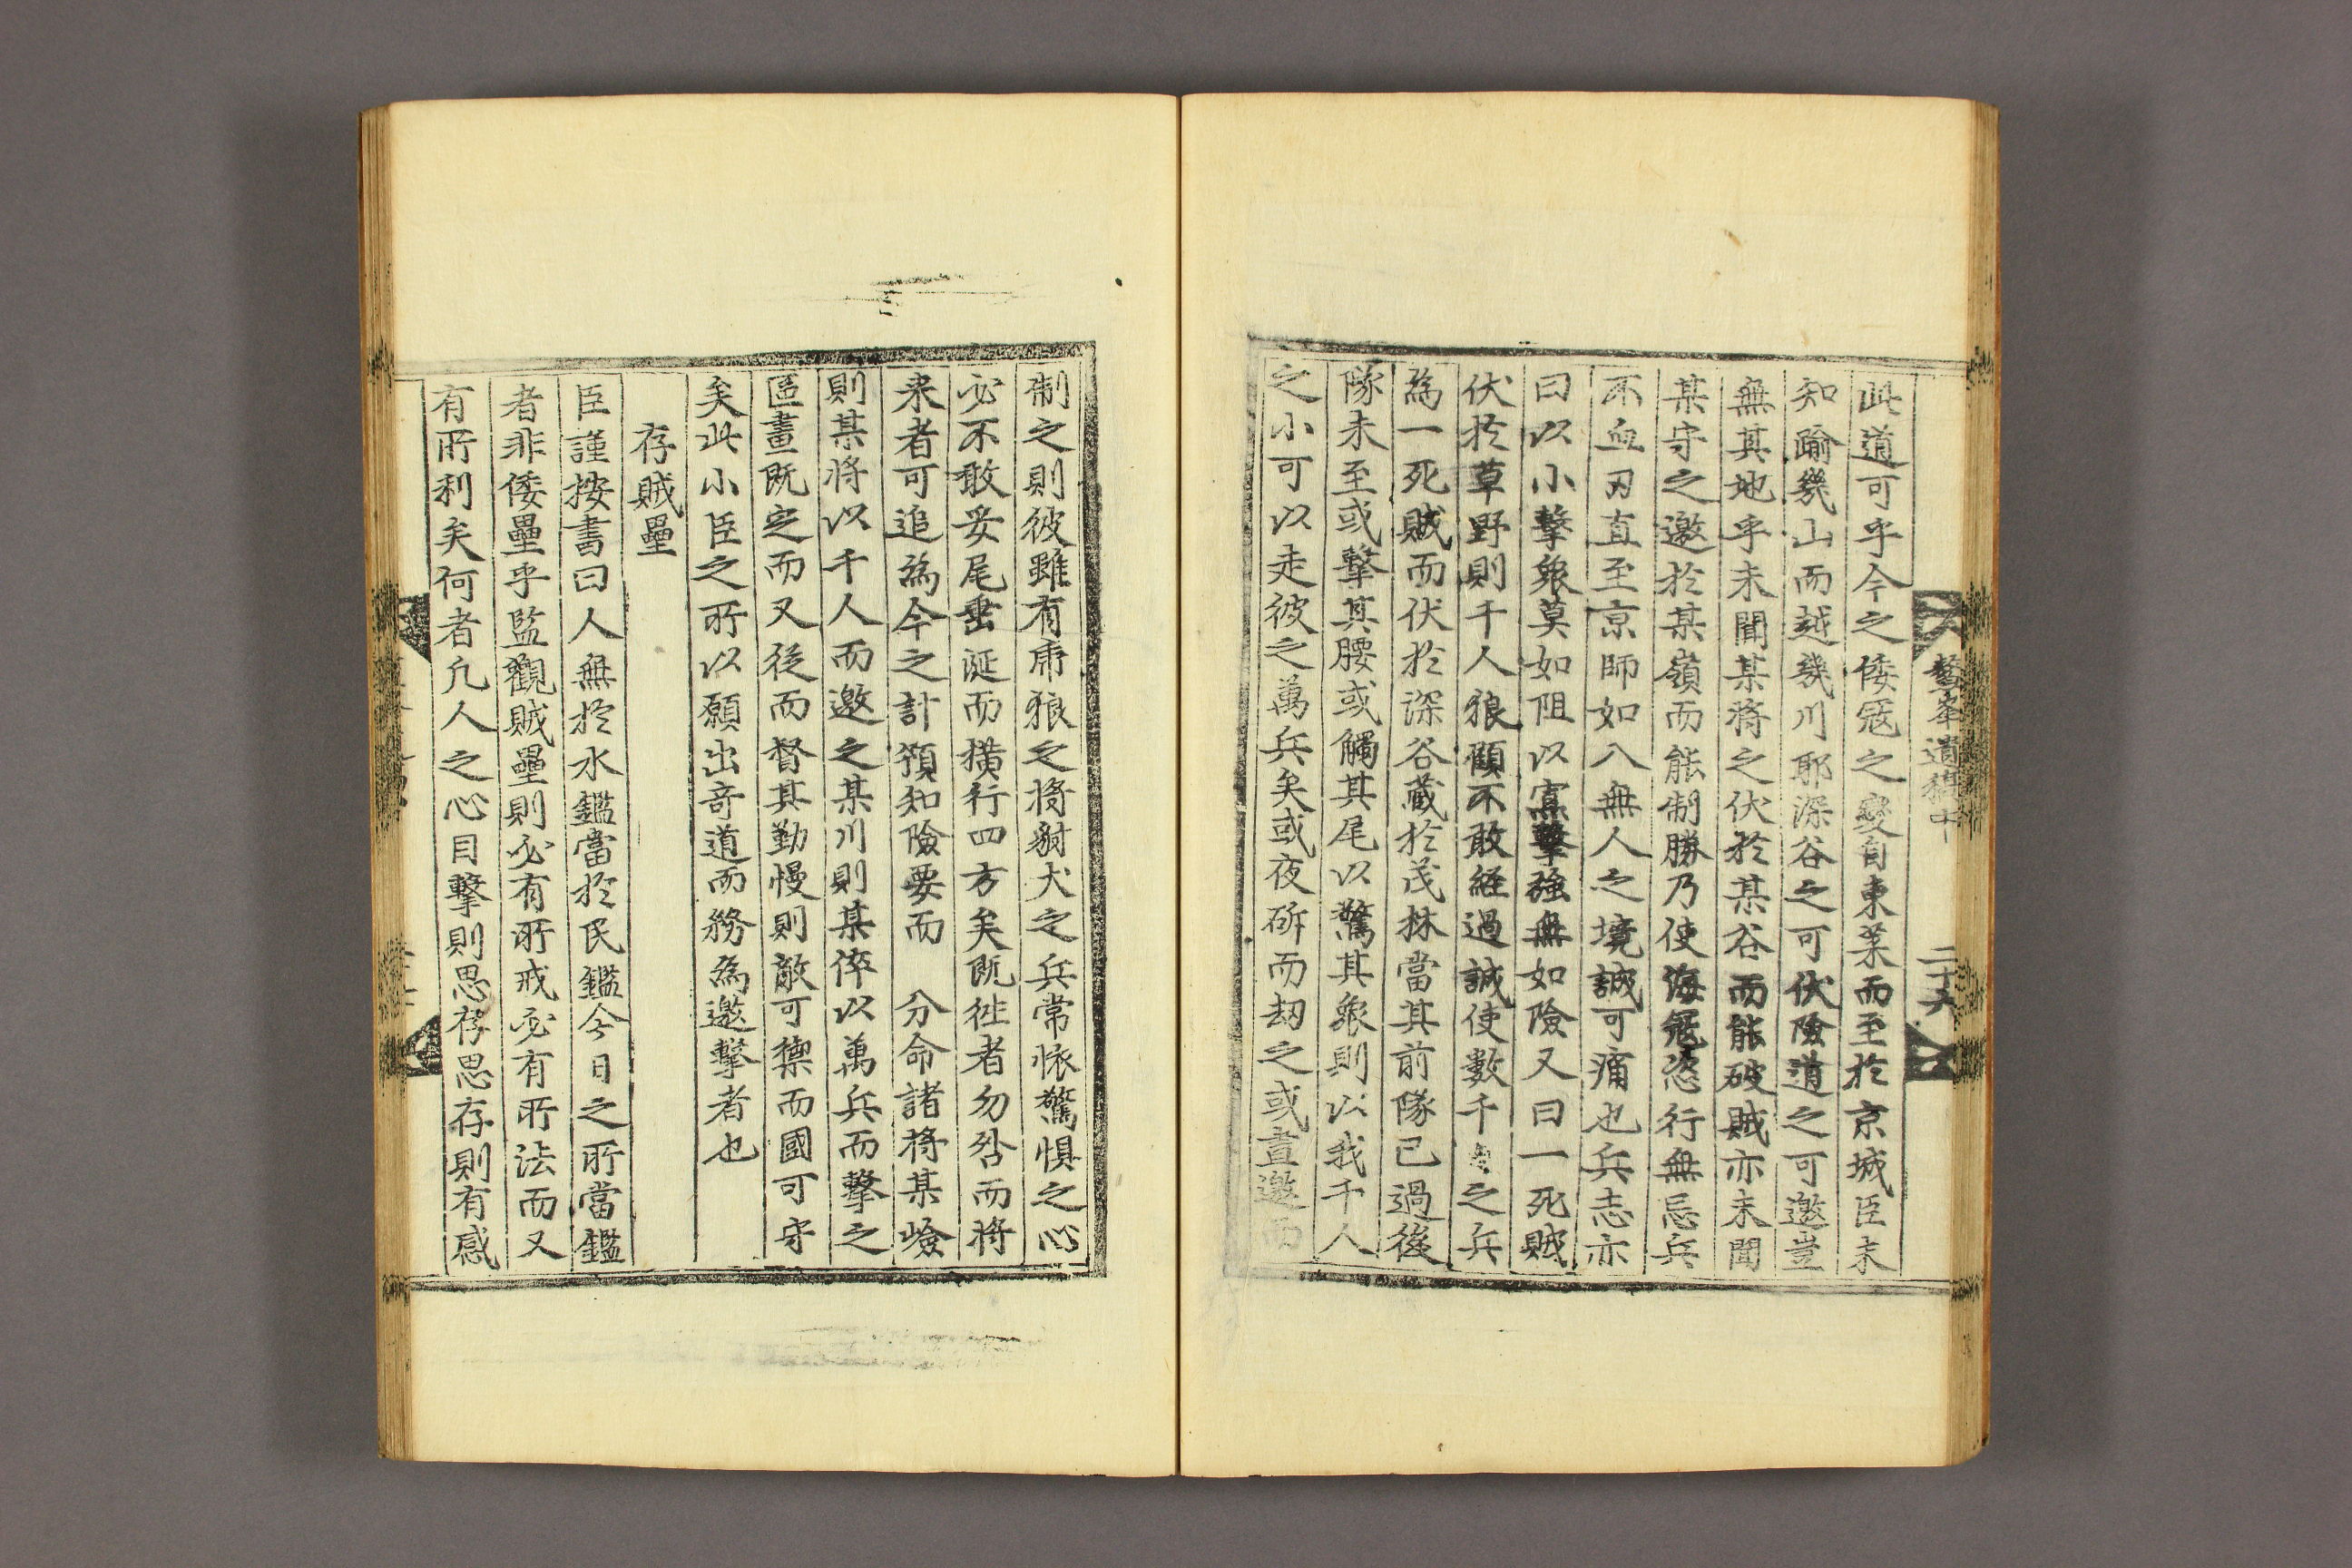 鰲峯遺稿中 二十六
此道可乎今之倭冦之變自東萊而至於京城臣未
知踰幾山而越幾川耶深谷之可伏險道之可邀豈
無其地乎未聞某將之伏於某谷而能破賊亦未聞
某守之邀於某嶺而能制勝乃使海冦恣行無忌兵
不血刃直至京師如入無人之境誠可痛也兵志亦
曰以小擊衆莫如阻以寡擊強無如險又曰一死賊
伏於草野則千人狼顧不敢経過誠使數千之兵
為一死賊而伏於深谷藏於茂林當其前隊已過後
隊未至或擊其腰或觸其尾以驚其衆則以我千人
之小可以走彼之萬兵矣或夜斫而刼之或晝邀而
制之則彼雖有庸狼之將豺犬之兵常懷驚惧之心
必不敢妥尾垂涎而横行四方矣既徃者勿咎而將
来者可追為今之計預知險要而 分命諸将某嶮
則某将以千人而邀之某川則某倅以萬兵而擊之
區畫既定而又従而督其勤慢則敵可禦而國可守
矣此小臣之所以願出竒道而務為邀擊者也
存賊壘
臣謹按書曰人無於水鑑當於民鑑今日之所當鑑
者非倭壘乎監觀賊壘則必有所戒必有所法而又
有所利矣何者凡人之心目擊則思存思存則有感